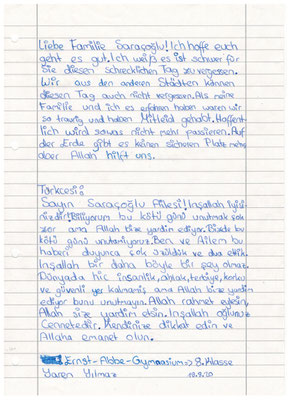 Liebe Familie Saraçoğlu! Ich hoffe euch
geht es gut. Ich weiß es ist schwer für
Sie diesen schrecklichen Tag zu vergessen.
Wir aus den anderen Städten können
diesen Tag auch nicht vergessen. Als meine
Familie und ich es erfahren haben waren wir
so traurig und haben Mitleid gehabt. Hoffent-
lich wird sowas nicht mehr passieren. Auf
der Erde gibt es keinen sicheren Platz mehr,
aber Allah hilft uns.
Türkcesi:
Sayın Saraçoğlu Ailesi! Inşallah iyisi-
nizdir! Biliyorum bu kötü günü unutmak çok
zor ama Allah bize yardım ediyor. Bizde bu
kötü günü unutamıyoruz. Ben ve Ailem bu
haberi duyunca çok üzüldük ve dua ettik.
Inşallah bir daha böyle bir şey olmaz.
Dünyada hiç insanlık, ahlak, terbiye, korku
ve güvenli yer kalmamış ama Allah bize yardım
ediyor bunu unutmayın. Allah rahmet eylesin,
Allah size yardım etsin. Inşallah oğlunuz
Cennetedir. Kendinize dikkat edin ve
Allaha emanet olun.
Ernst-Abbe-Gymnasium => 8. Klasse
Yaren Yılmaz